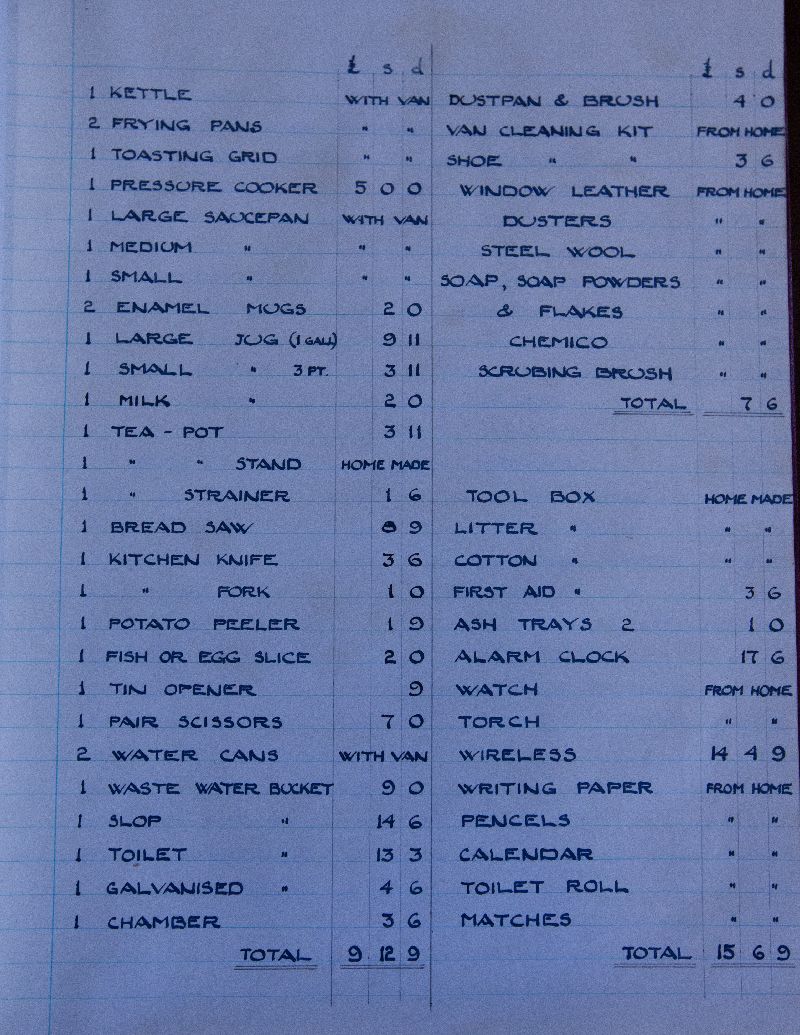 £ s d
1 KETTLE WITH VAN
2 FRYING PANS " "
1 TOASTING GRID " "
1 PRESSURE COOKER 5 0 0
1 LARGE SAUCEPAN WITH VAN
1 MEDIUM " " "
1 SMALL " " "
2 ENAMEL MUGS 2 0
1 LARGE JUG (1 GALL) 9 11
1 SMALL " 3 PT. 3 11
1 MILK " 2 0
1 TEA-POT 3 11
1 " " STAND HOME MADE
1 " STRAINER 1 6
1 BREAD SAW 8 9
1 KITCHEN KNIFE 3 6
1 " FORK 1 0
1 POTATO PEELER 1 9
1 FISH OR EGG SLICE 2 0
1 TIN OPENER 9
1 PAIR SCISSORS 7 0
2 WATER CANS WITH VAN
1 WASTE WATER BUCKET 9 0
1 SLOP " 14 6
1 TOILET " 13 3
1 GALVANISED " 4 6
1 CHAMBER 3 6
TOTAL 9 12 9
£ s d
DUSTPAN & BRUSH 4 0
VAN CLEANING KIT FROM HOME
SHOE " " 3 6
WINDOW LEATHER FROM HOME
DUSTERS " "
STEEL WOOL " "
SOAP, SOAP POWDERS " "
& FLAKES " "
CHEMICO " "
SCRUBING BRUSH " "
TOTAL 7 6
TOOL BOX HOME MADE
LITTER " " "
COTTON " " "
FIRST AID " 3 6
ASH TRAYS 2 1 0
ALARM CLOCK 17 6
WATCH FROM HOME
TORCH " "
WIRELESS 14 4 9
WRITING PAPER FROM HOME
PENCELS " "
CALENDAR " "
TOILET ROLL " "
MATCHES " "
TOTAL 15 6 9